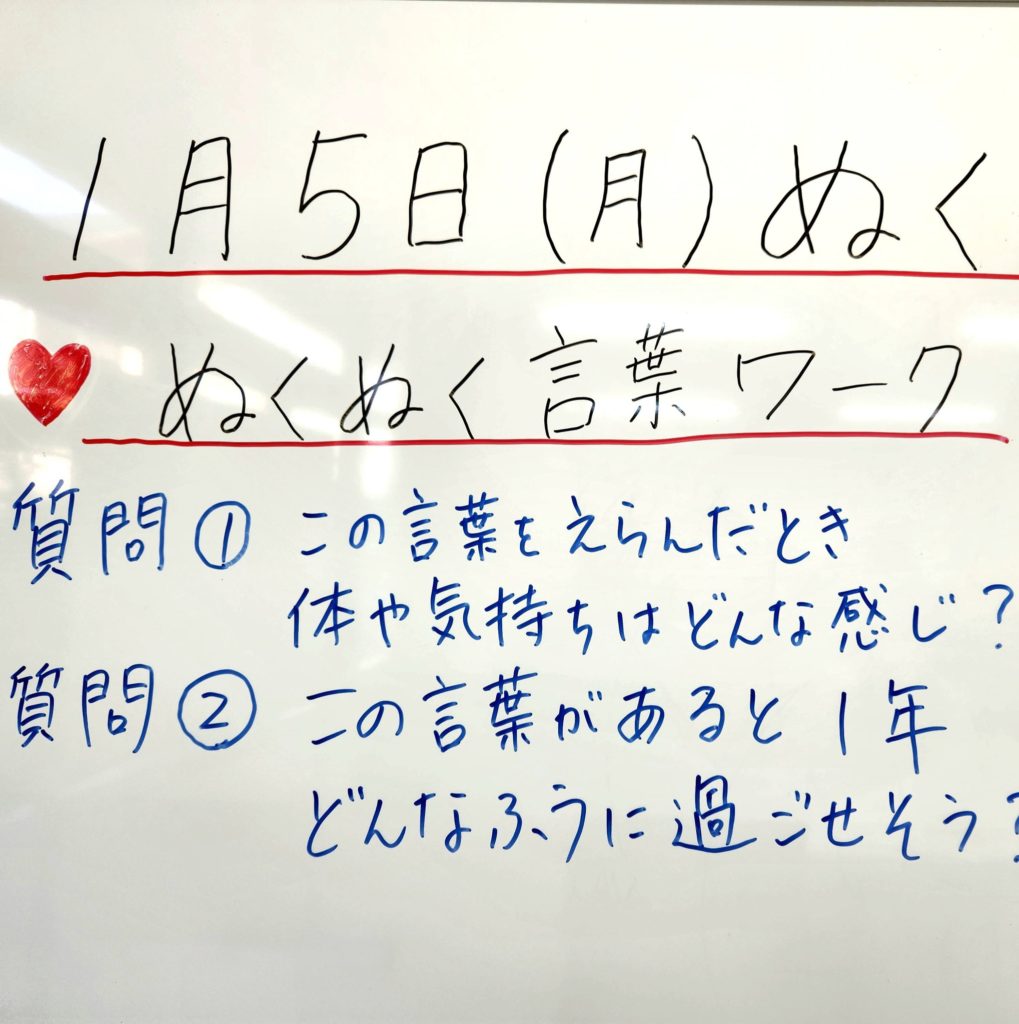 1月5日(月)ぬく
ぬくぬく言葉ワーク
質問① この言葉をえらんだとき
体や気持ちはどんな感じ?
質問② この言葉があると1年
どんなふうに過ごせそう?